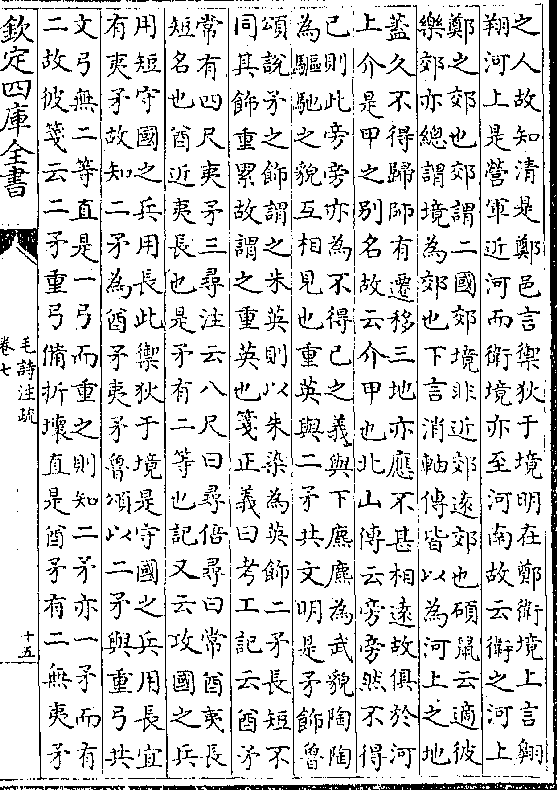 之人故知清是鄭邑言禦狄于境明在鄭衛境上言翱
翔河上是營軍近河而衛境亦至河南故云衛之河上
鄭之郊也郊謂二國郊境非近郊遠郊也碩鼠云適彼
樂郊亦總謂境為郊也下言消軸傳皆以為河上之地
蓋久不得歸師有遷移三地亦應不甚相遠故俱於河
上介是甲之别名故云介甲也北山傳云旁旁然不得
已則此旁旁亦為不得已之義與下麃麃為武貌陶陶
為驅馳之貌互相見也重英與二矛共文明是矛飾魯
頌說矛之飾謂之朱英則以朱染為英飾二矛長短不
同其飾重累故謂之重英也箋正義曰考工記云酋矛
常有四尺夷矛三尋注云八尺曰尋倍尋曰常酋夷長
短名也酋近夷長也是矛有二等也記又云攻國之兵
用短守國之兵用長此禦狄于境是守國之兵用長宜
有夷矛故知二矛為酋矛夷矛魯頌以二矛與重弓共
文弓無二等直是一弓而重之則知二矛亦一矛而有
二故彼箋云二矛重弓備折壞直是酋矛有二無夷矛
欽定四庫全書
毛詩注疏
卷七
十五